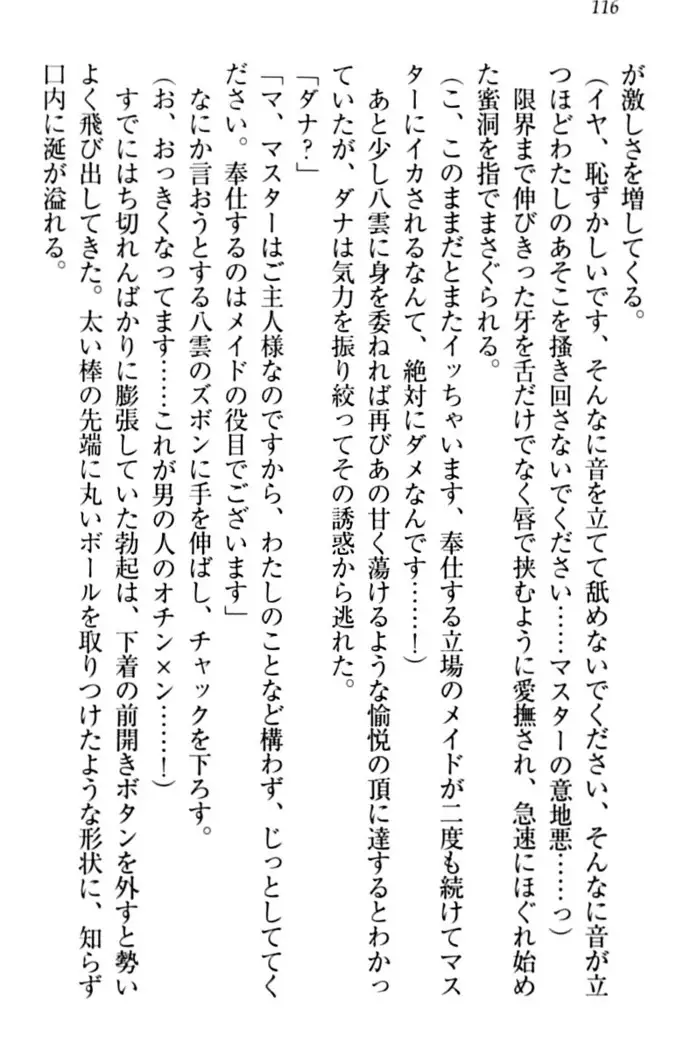 116
が激しさを増してくる。
（イヤ、恥ずかしいです、そんなに音を立てて舐めないでください、そんなに音が立
つほどわたしのあそこを掻き回さないでください……マスターの意地悪……っ）
限界まで伸びきった牙を舌だけでなく唇で挟むように愛撫され、急速にほぐれ始め
た蜜洞を指でまさぐられる。
（こ、このままだとまたイッちゃいます、奉仕する立場のメイドが二度も続けてマス
ターにイカされるなんて、絶対にダメなんです……！）
あと少し八雲に身を委ねれば再びあの甘く蕩けるような愉悦の頂に達するとわかっ
ていたが、ダナは気力を振り絞ってその誘惑から逃れた。
「ダナ？」
「マ、マスターはご主人様なのですから、わたしのことなど構わず、じっとしててく
ださい。奉仕するのはメイドの役目でございます」
なにか言おうとする八雲のズボンに手を伸ばし、チャックを下ろす。
（お、おっきくなってます……これが男の人のオチン×ン……！）
すでにはち切れんばかりに膨張していた勃起は、下着の前開きボタンを外すと勢い
よく飛び出してきた。太い棒の先端に丸いボールを取りつけたような形状に、知らず
口内に涎が溢れる。